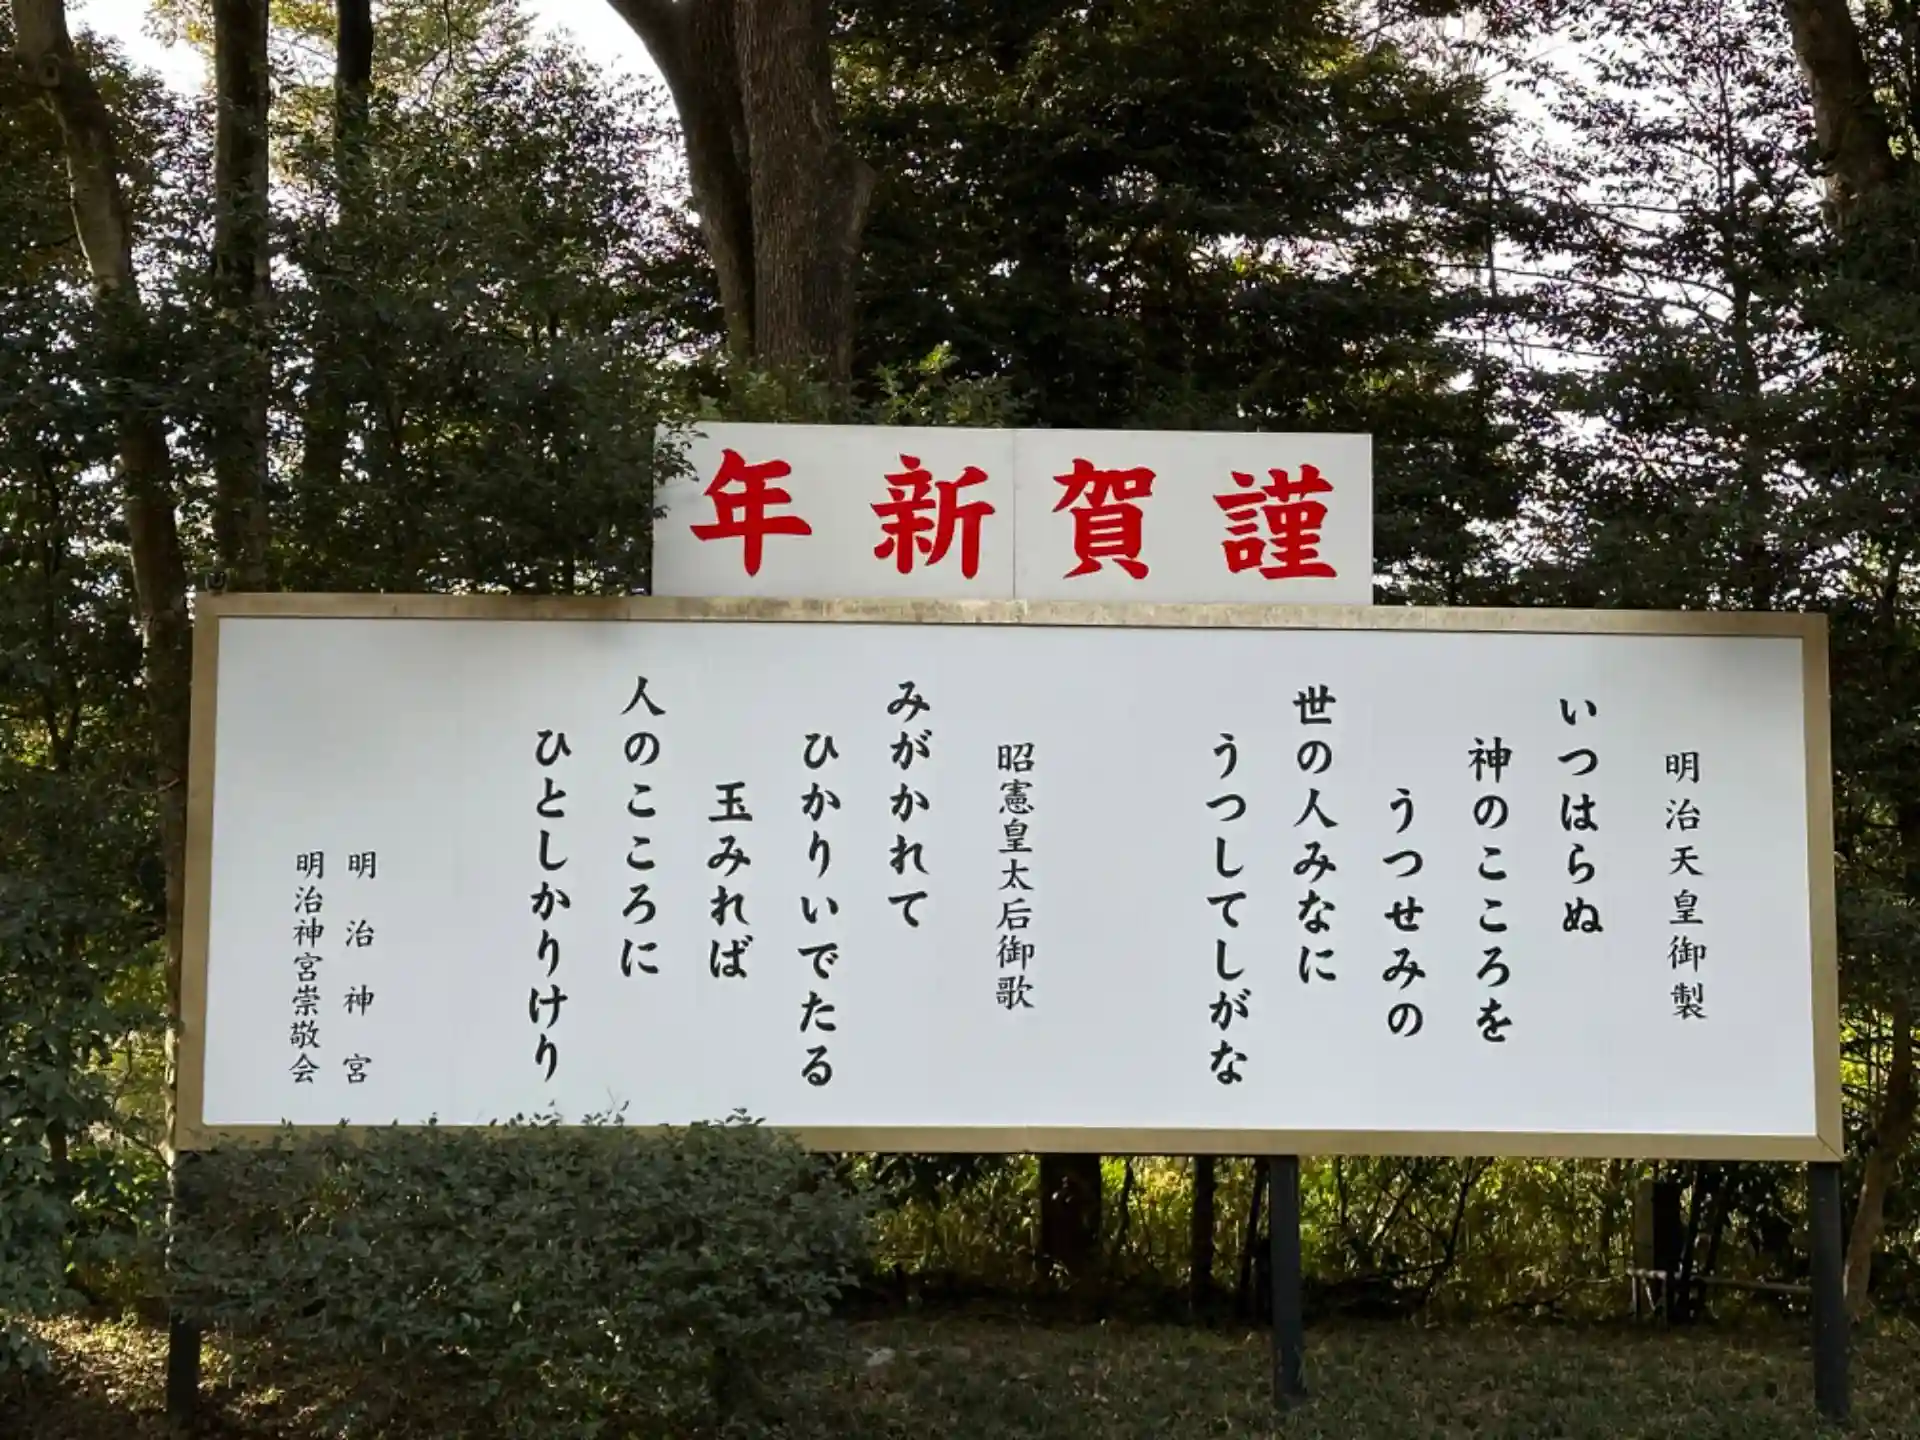 謹賀新年
明治天皇御製
いつはらぬ
神のこころを
うつせみの
世の人みなに
うつしてしがな
昭憲皇太后御歌
みがかれて
ひかりいでたる
玉みれば
人のこころに
ひとしかりけり
明治神宮
明治神宮崇敬会